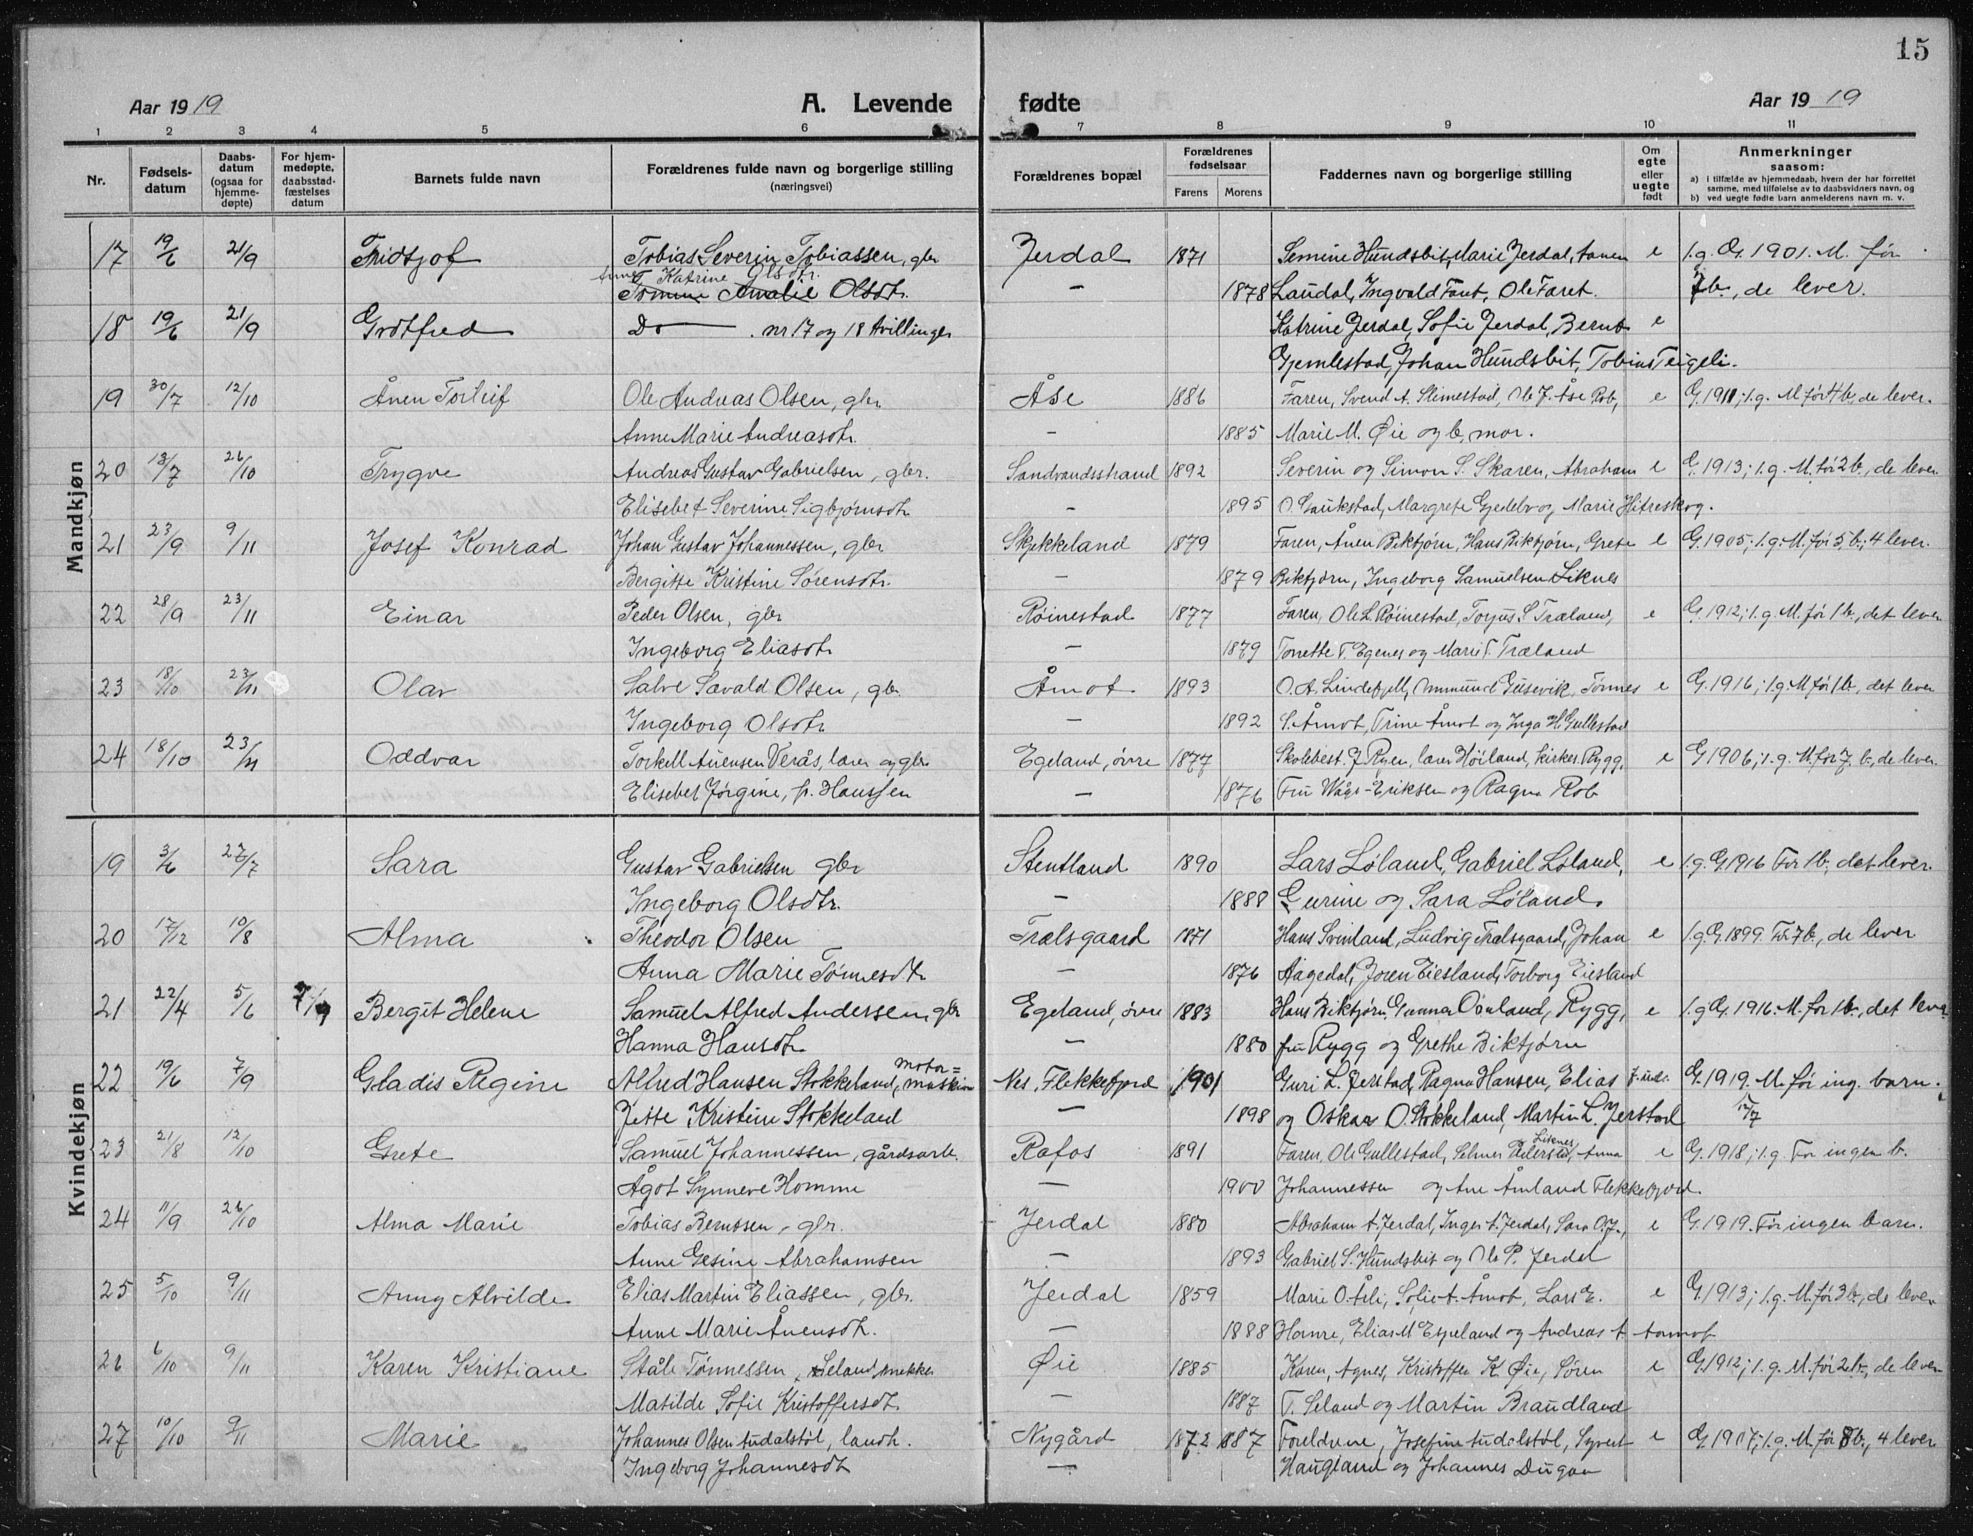 15
Aar 1919 A. Levende fødte Aar 1919
1 2 3 4 5 6 7 8 9 10 11
Nr. Fødsels-datum Daabs-datum (ogsaa for hjemme-døpte) For hjem-medøpte, daabsstad-fæstelses datum Barnets fulde navn Forældrenes fulde navn og borgerlige stilling (næringsvei) Forældrenes bopæl Forældrenes fødselsaar Farens Morens Faddernes navn og borgerlige stilling Om egte eller uegte født Anmerkninger saasom: a) i tilfælde av hjemmedaab, hvem der har forrettet samme, med tilføielse av to daabsvidners navn, og b) ved uegte fødte barn anmelderens navn m. v.
Mandkjøn
17 19/6 21/9 Fridtjof Tobias Severin Tobiassen, gbr Jerdal 1871 Semine Hundsbit, Marie Jerdal, e 1.g. G. 1901. M. før
Anne Katrine Olsdtr.
Tomine Amalie Olsdt. — 1878 Laudal, Ingvald Faret, Ole Faret. 7 b., de lever.
18 19/6 21/9 Grotfred Do — . nr 17 og 18 tvillinger Katrine Jerdal, Sofie Jerdal, Bernt e
Gjemlestad, Johan Hundsbit, Tobias Teigeli.
19 30/7 12/10 Ånen Torleif Ole Andreas Olsen, gbr Åse 1886 Faren, Svend A. Slimestad, Ole J. Åse Rob, e G. 1911; 1.g. M. før 4 b, de lever.
Anne Marie Andreasdtr. — 1885 Marie M. Øie og b, mor.
20 13/7 26/10 Trygve Andreas Gustav Gabrielsen, gbr. Sandvandsstrand 1892 Severin og Simon S. Skaren, Abraham e G. 1913; 1.g. M. før 2 b., de lever
Elisebet Severine Sigbjørnsdtr. — 1895 O. Laukstad, Margrete Gjedebo og Marie Hitreskog.
21 23/9 9/11 Josef Konrad Johan Gustav Johannessen, gbr Skjekkeland 1879 Faren, Ånen Biktjørn, Hans Biktjørn, Grete e G. 1905; 1.g. M. før 5 b; 4 lever.
Bergitte Kristine Sørensdtr. — 1879 Biktjørn, Ingeborg Samuelsen Liknes
22 28/9 23/11 Einar Peder Olsen, gbr Røinestad 1877 Faren, Ole L. Røinestad, Torjus S. Træland, e G. 1912; 1.g. M. før 1 b., det lever
Ingeborg Eliasdtr. — 1879 Tonette T. Egenes og Marie T. Træland
23 18/10 23/11 Olav Salve Savald Olsen, gbr. Åmot 1893 O. A. Lindefjell, Ommund Gusevik, Tønnes e G. 1916; 1.g. M. før 1 b., det lever
Ingeborg Olsdtr. — 1892 S. Åmot, Trine Åmot og Inga H. Gullestad
24 18/10 23/11 Oddvar Torkell Aanensen Verås, lærer og gbr Egeland, øvre 1877 Skolebest. J. Ryen, lærer Høiland, kirkes. Rygg, e G. 1906; 1.g. M. før 7 b, de lever.
Elisebet Jørgine, f. Hanssen — 1876 Fru Wågs-Eriksen og Ragna Rob
Kvindekjøn
19 3/6 27/7 Sara Gustav Gabrielsen gbr Stentland 1890 Lars Løland, Gabriel Løland, e 1.g. G. 1916 Før 1 b, det lever
Ingeborg Olsdtr. — 1888 Gurine og Sara Løland.
20 17/12 10/8 Alma Theodor Olsen Trælsgaard 1871 Hans Svinland, Ludvig Trælsgaard, Johan e 1.g. G. 1899. Før 7 b, de lever
Anna Marie Tønnesdtr — 1876 Aagedal, Joren Eiesland, Torborg Eiesland
21 22/4 5/6 Bergit Helene Samuel Alfred Andersen, gbr Egeland, øvre 1883 Hans Biktjørn, Gunnar Omland, Rygg, e 1.g. G. 1916. M. før 1 b., det lever
Hanna Hansdtr. — 1880 fru Rygg og Grethe Biktjørn
22 19/6 7/9 Gladis Regine Alfred Hansen Stokkeland, motor=maskin Nes, Flekkefjord 1901 Guri L. Jerstad, Ragna Hansen, Elias G. 1919. M. før ing. barn.
Jette Kristine Stokkeland — 1898 og Oskar O. Stokkeland, Martin L. Jerstad
23 21/8 12/10 Grete Samuel Johannessen, gårdsarb. Rafos 1891 Faren, Ole Gullestad, Selmer Liknes, Anna e G. 1918; 1.g. Før ingen b.
Ågot Synneve Homme — 1900 Johannessen og Ane Åmland Flekkefjord.
24 11/9 26/10 Alma Marie Tobias Berntsen, gbr. Jerdal 1880 Abraham A. Jerdal, Inger A. Jerdal, Sara O. J., e G. 1919. Før ingen barn.
Anne Gesine Abrahamsen — 1893 Gabriel S. Hundsbit og Ole P. Jerdal
25 5/10 9/11 Anny Alvilde Elias Martin Eliassen, gbr. Jerdal 1859 Marie O. Åsli, Sofie A. Åmot, Lars E. e G. 1913; 1.g. M. før 3 b., de lever
Anne Marie Ånensdtr. — 1888 Hamre, Elias M. Espeland og Andreas A. Aamot
26 6/10 9/11 Karen Kristiane Ståle Tønnessen Seland, snekker Øie 1885 Karen, Agnes, Kristoffer K. Øie, Søren e G. 1912; 1.g. M. før 2 b, de lever
Matilde Sofie Kristoffersdtr. — 1887 T. Seland og Martin Braudland
27 10/10 9/11 Marie Johannes Olsen Audalstøl, landh. Nygård 1872 1887 Foreldrene, Josefine Audalstøl, Syvert e G. 1907; 1.g. M. før 8 b., 4 lever
Ingeborg Johannesdtr — Haugland og Johannes Dugan